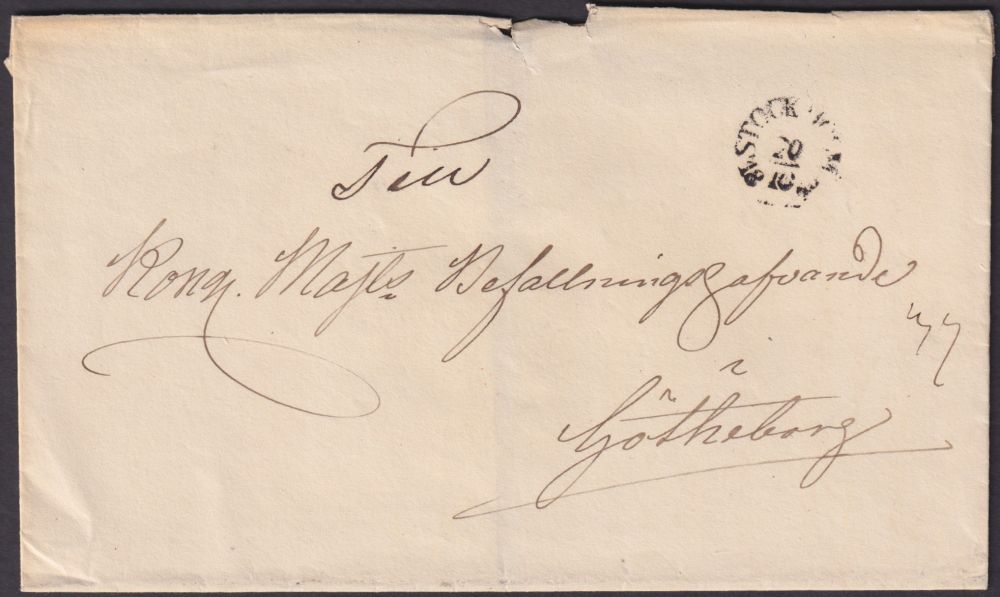 STOCKHOLM
20
10
Till
Kongl. Majts Befallningshafvande
i
Götheborg